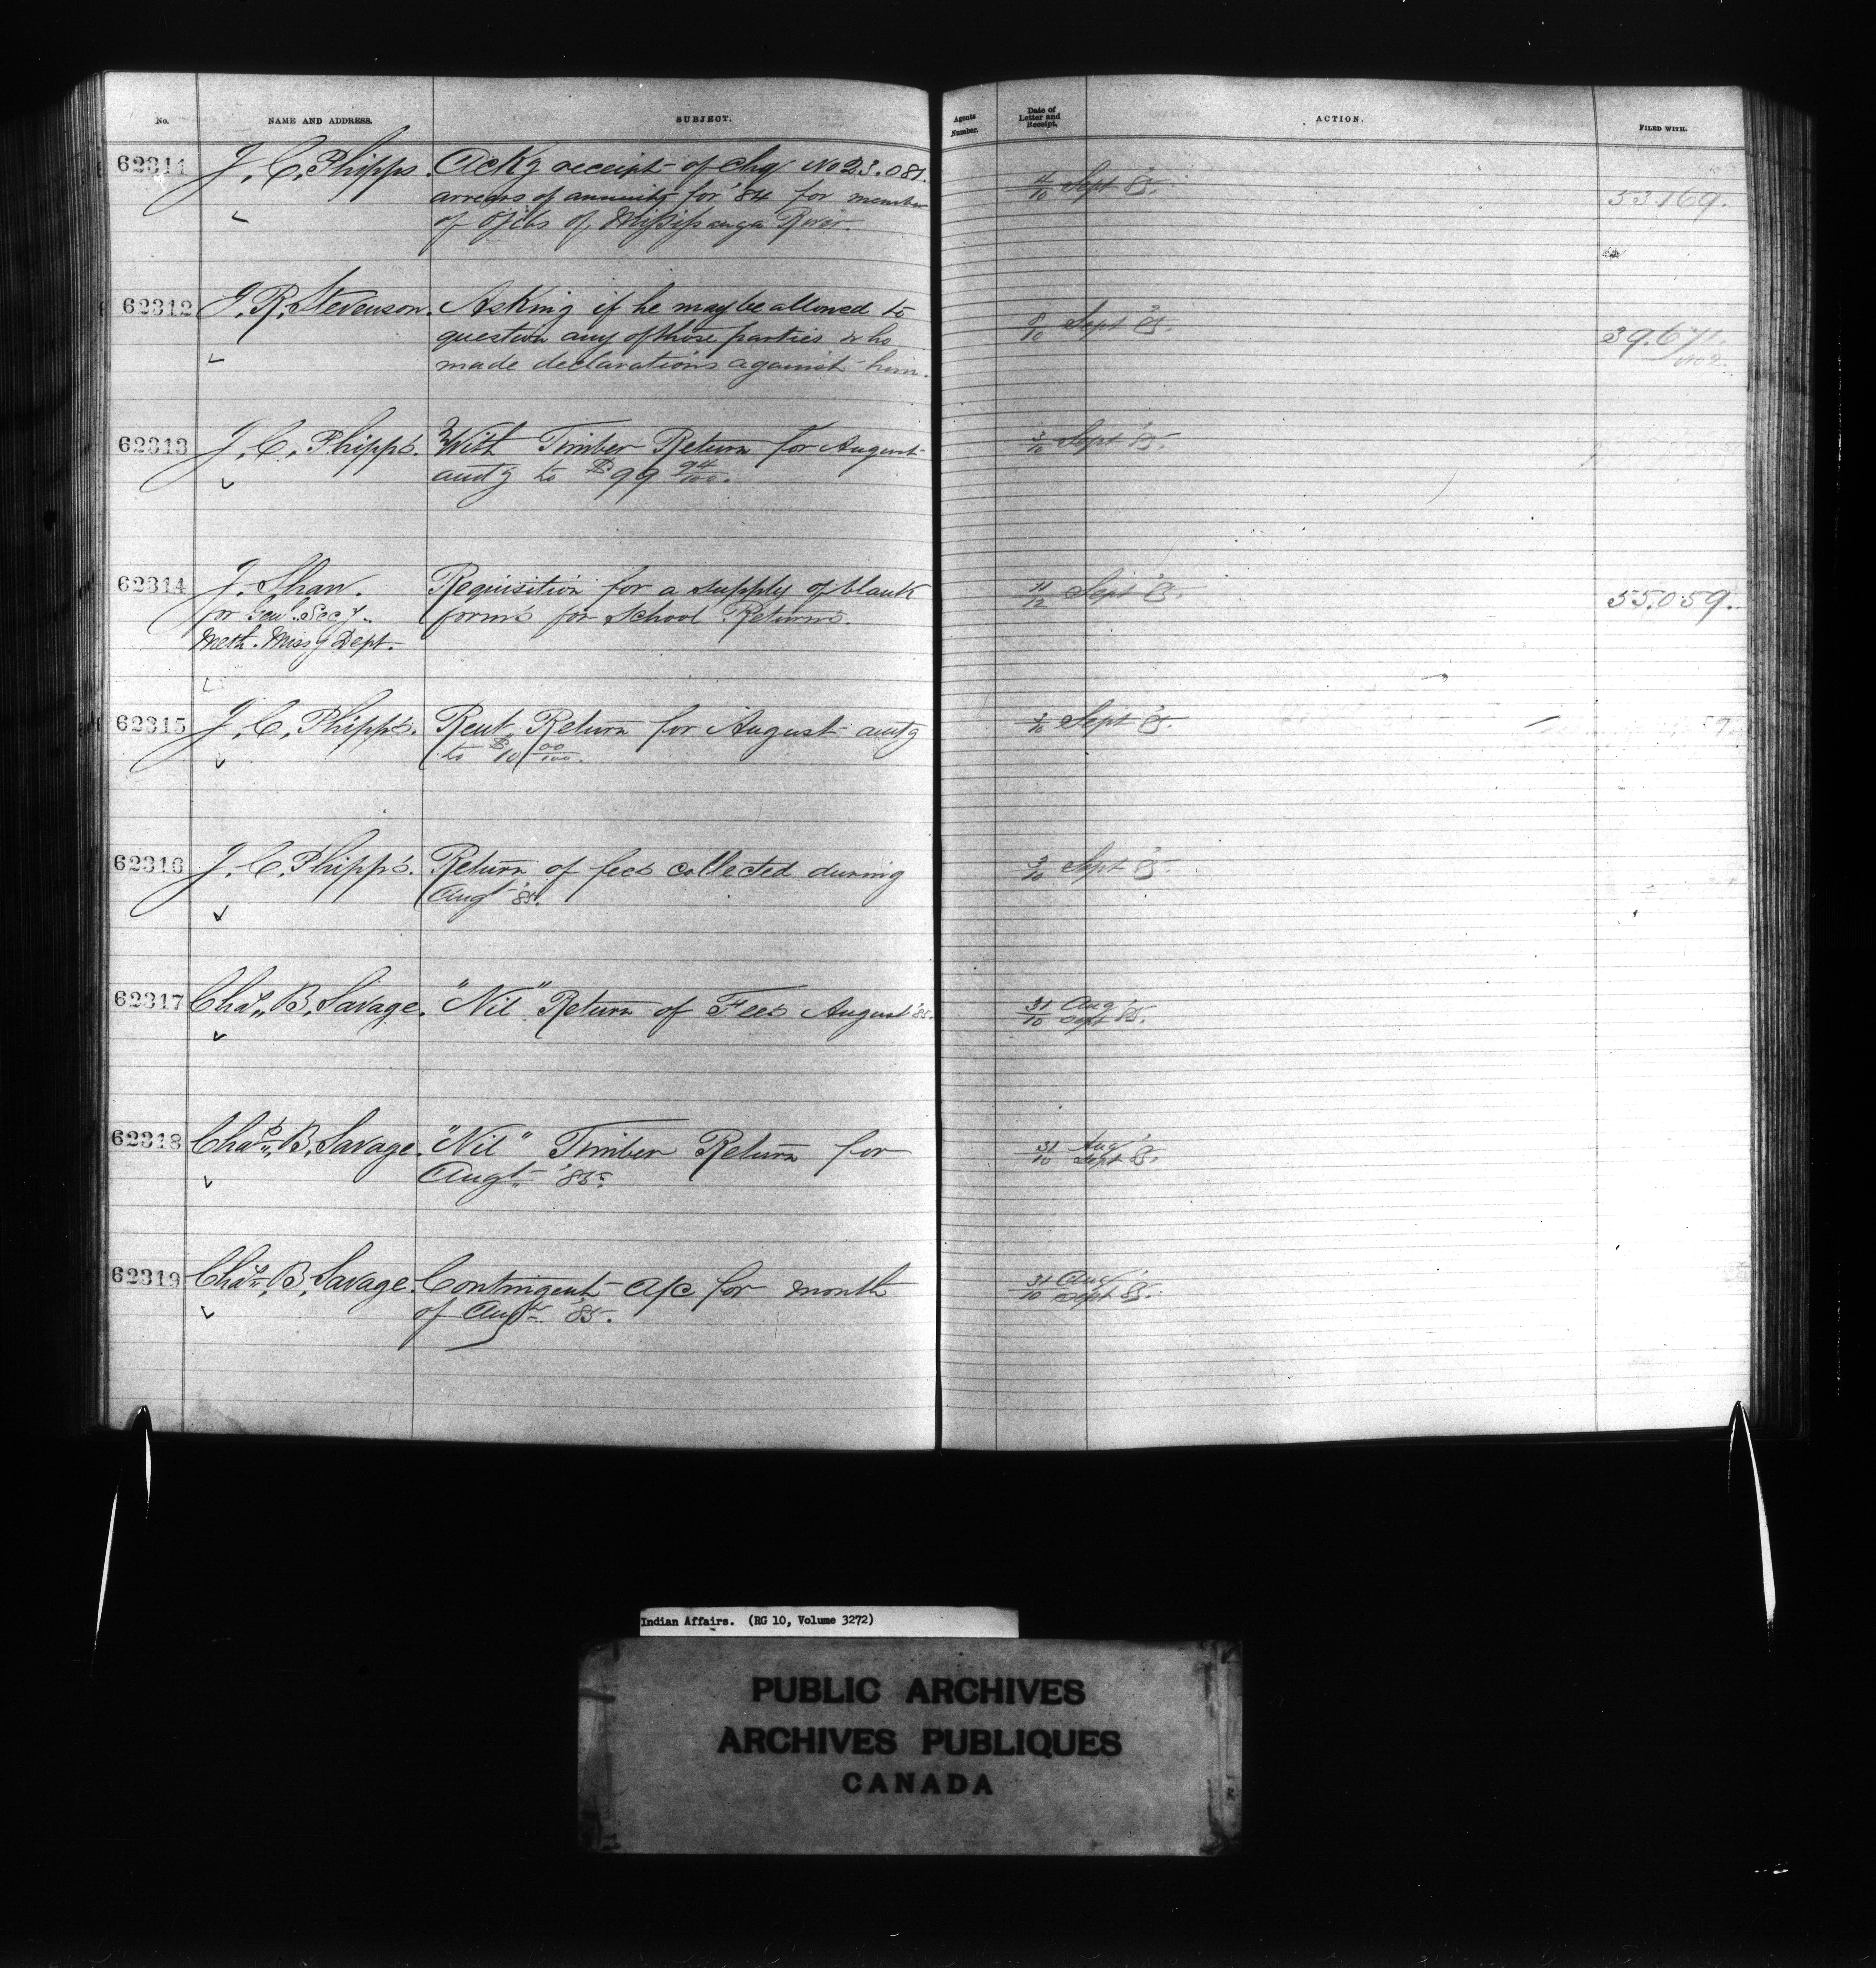 No.
NAME AND ADDRESS.
SUBJECT.
Agents Number.
Date of Letter and Receipt.
ACTION.
FILED WITH.
62311 J. C. Phipps. Ackg receipt of chq No 23.081. 4/10 Sept '85. 53.169.
arrears of annuity for '84 for member
of Ojibs of Mississauga River.
62312 J. R. Stevenson. Asking if he may be allowed to 8/10 Sept '85. 39.671.
question any of those parties who No 2.
made declarations against him.
62313 J. C. Phipps. With Timber Return for August 3/10 Sept '85.
amtg to $99 94/100.
62314 J. Shaw. Requisition for a supply of blank 11/12 Sept '85. 55.059.
for Genl. Secy. forms for School Returns.
Meth. Missy Dept.
62315 J. C. Phipps. Rent Return for August amtg /10 Sept '85.
to $10 00/100.
62316 J. C. Phipps. Return of fees collected during /10 Sept '85.
Augt '85.
62317 Chas. B. Savage. "Nil" Return of Fees August '85. 31/10 Aug/Sept '85.
62318 Chas. B. Savage. "Nil" Timber Return for 31/10 Aug/Sept '85.
Augt. '85.
62319 Chas. B. Savage. Contingent a/c for month 31/10 Aug/Sept '85.
of Augt. '85.
Indian Affairs. (RG 10, Volume 3272)
PUBLIC ARCHIVES
ARCHIVES PUBLIQUES
CANADA